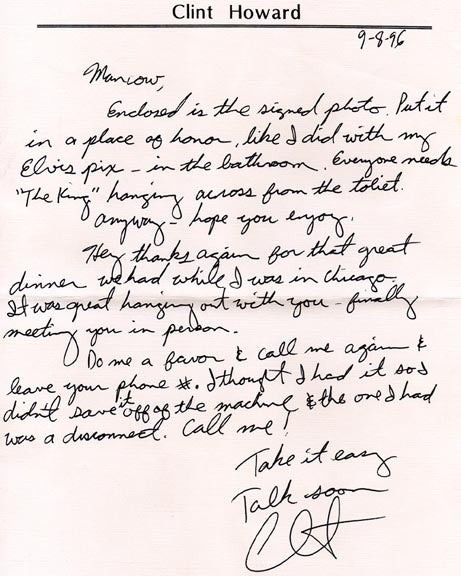 Clint Howard
9-8-96
Mancow,
Enclosed is the signed photo. Put it
in a place of honor, like I did with my
Elvis pix - in the bathroom. Everyone needs
"The King" hanging across from the toliet.
Anyway - hope you enjoy.
Hey thanks again for that great
dinner we had while I was in Chicago.
It was great hanging out with you - finally
meeting you in person.
Do me a favor & call me again &
leave your phone #. I thought I had it so I
didn't save it off of the machine & the one I had
was a disconnect. Call me!
Take it easy
Talk soon
Clint